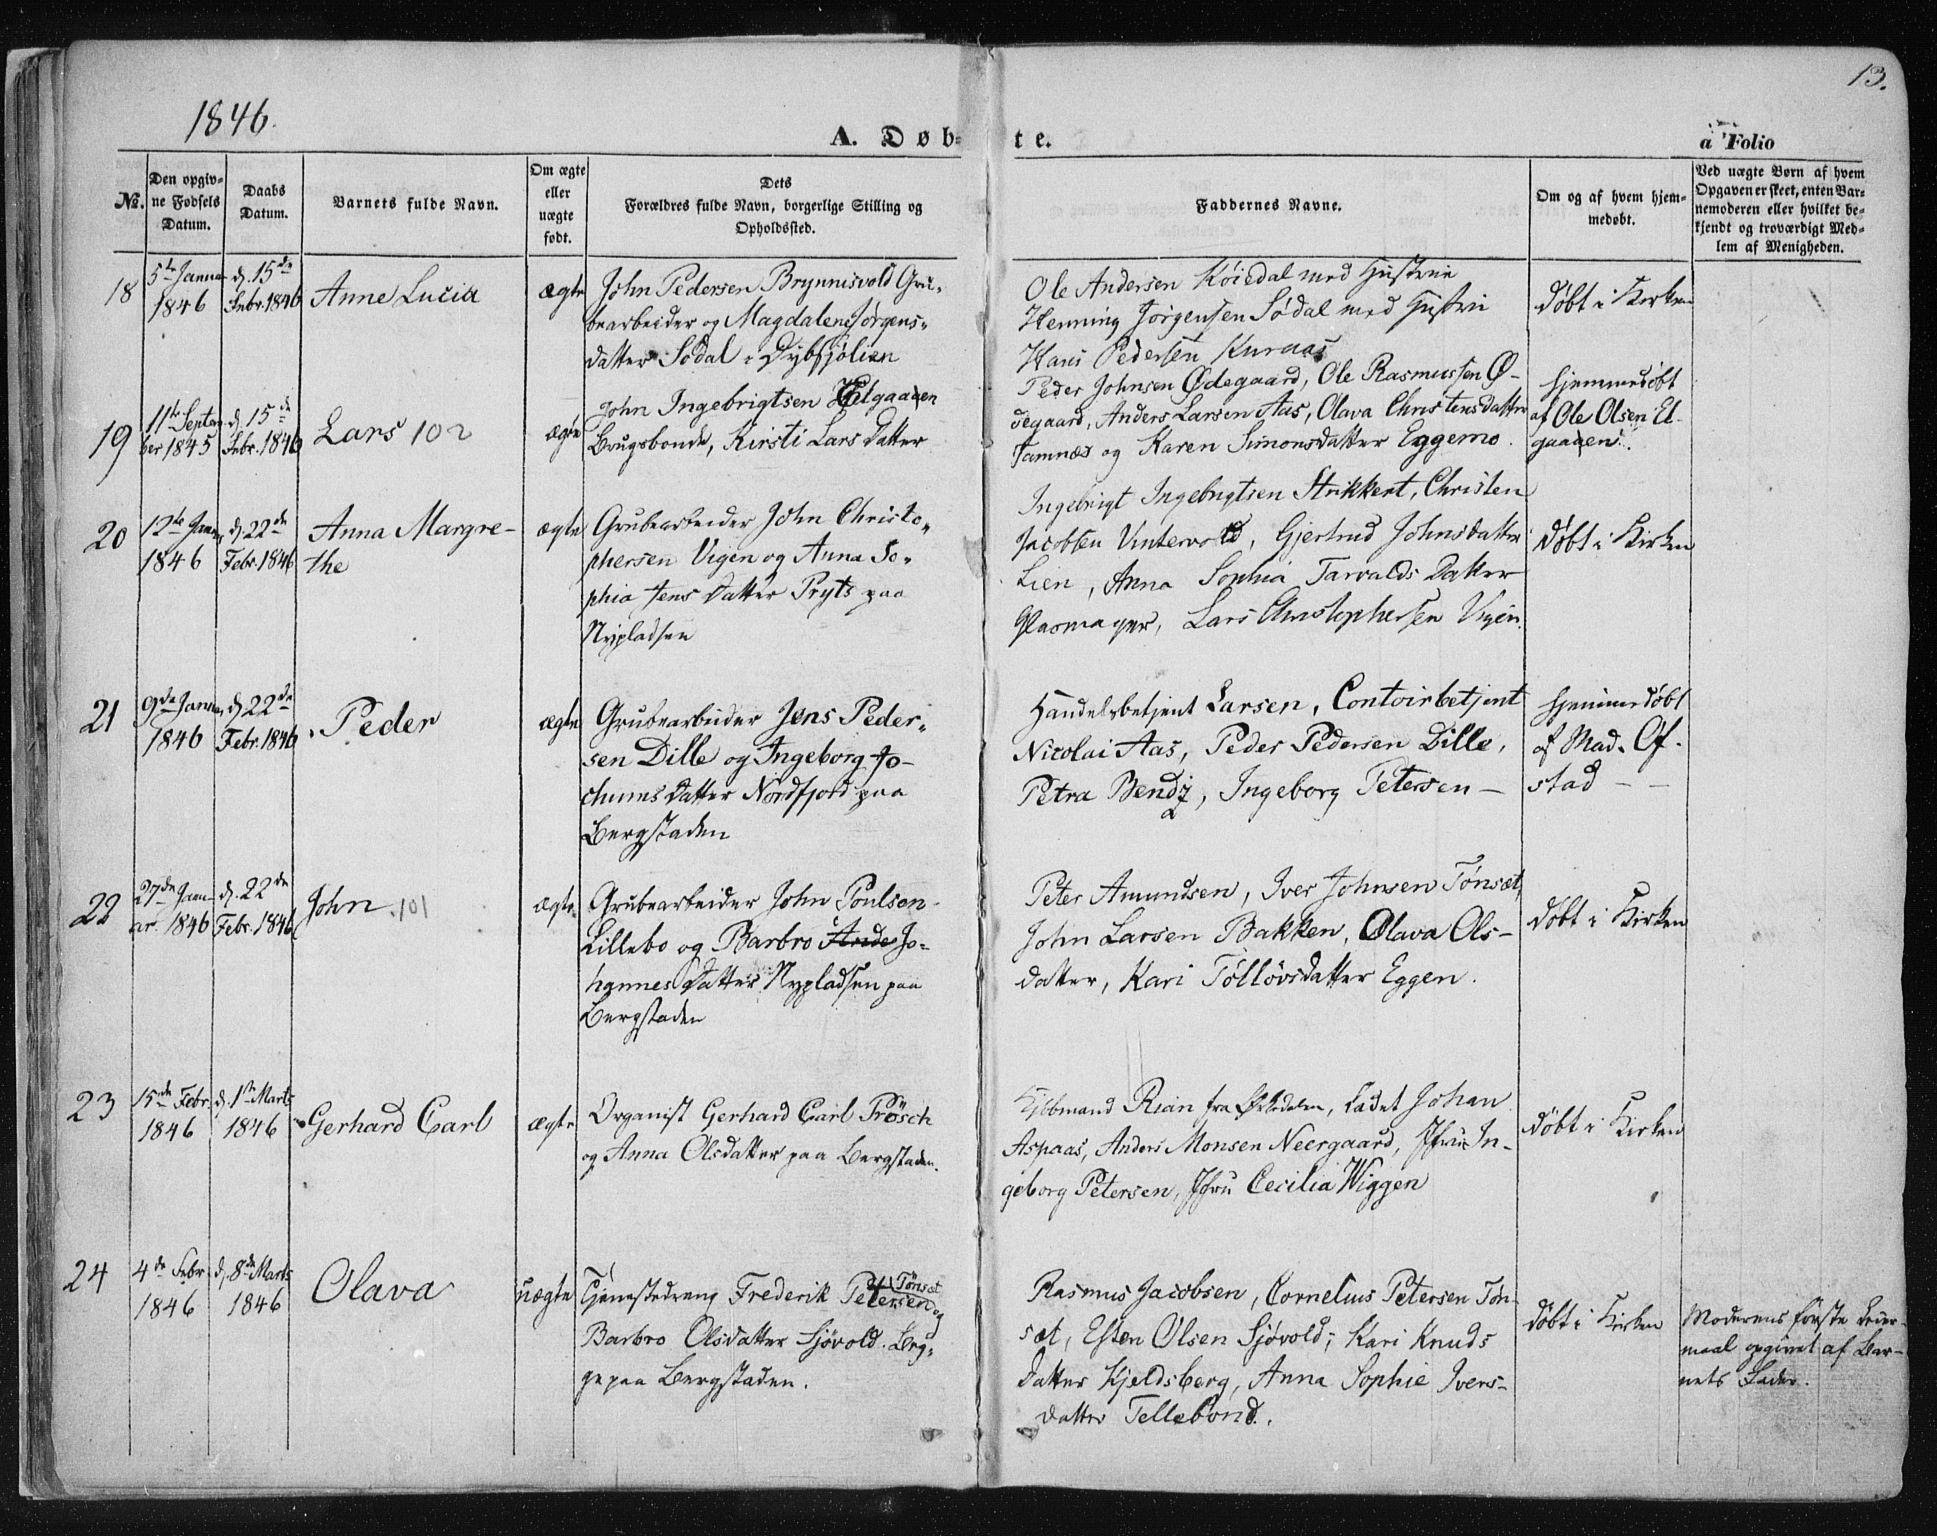 1846.
13.
A. Døb-
te.
à Folio
No.
Den opgiv-
ne Fødsels
Datum.
Daabs
Datum.
Barnets fulde Navn.
Om ægte
eller
uægte
født.
Dets
Forældres fulde Navn, borgerlige Stilling og
Opholdssted.
Faddernes Navne.
Om og af hvem hjem-
medøbt.
Ved uægte Børn af hvem
Opgaven er skeet, enten Bar-
nemoderen eller hvilket be-
kjendt og troværdigt Med-
lem af Menigheden.
18
5te Januar
1846
d. 15de
Febr. 1846
Anne Lucia
ægte
John Pedersen Brynnisvold Gru-
bearbeider og Magdalene Jørgens-
datter Sødal i Dybsjølien
Ole Andersen Køiedal med Hustrue
Henning Jørgensen Sødal med Hustrue
Hans Pedersen Kuraas
døbt i Kirken
19
11te Septem-
ber 1845
d. 15de
Febr. 1846
Lars 102
ægte
John Ingebrigtsen Elgaaen
Brugsbonde, Kirsti Lars Datter
Peder Johnsen Ødegaard, Ole Rasmussen Ø-
degaard, Anders Larsen Aas, Olava Christensdatter
Tamnæs og Karen Simonsdatter Eggemo.
hjemmedøbt
af Ole Olsen El-
gaaen.
20
12te Januar
1846
d. 22de
Febr. 1846
Anna Margre-
the
ægte
Grubearbeider John Christo-
phersen Vigen og Anna So-
phia Jens Datter Pryts paa
Nypladsen
Ingebrigt Ingebrigtsen Strikkert, Christen
Jacobsen Vintervold, Gjertrud Johnsdatter
Lien, Anna Sophia Tarvalds Datter
Glasmager, Lars Christophersen Vigen.
døbt i Kirken
21
9de Januar
1846
d. 22de
Febr. 1846
Peder
ægte
Grubearbeider Jens Peder-
sen Dille og Ingeborg Jo-
chums Datter Nordfjord paa
Bergstaden
Handelsbetjent Larsen, Contoirbetjent
Nicolai Aas, Peder Pedersen Dille,
Petra Bendz, Ingeborg Petersen –
hjemmedøbt
af Mad. Of-
stad – –
22
27de Janu-
ar 1846
d. 22de
Febr. 1846
John 101
ægte
Grubearbeider John Poulsen
Lillebo og Barbro Ande Jo-
hannes Datter Nypladsen paa
Bergstaden
Peter Amundsen, Iver Johnsen Tønset,
John Larsen Bakken, Olava Ols-
datter, Kari Tølløvsdatter Eggen.
døbt i Kirken
23
15de Febr.
1846
d. 1ste Marts
1846
Gerhard Carl
ægte
Organist Gerhard Carl Prösch
og Anna Olsdatter paa Bergstaden.
Kjøbmand Rian fra Ørkedalen, Cadet Johan
Aspaas, Anders Monsen Neergaard, Jfru In-
geborg Petersen, Jfru Cecilia Wiggen
døbt i Kirken
24
4de Febr
1846
d. 8de Marts
1846
Olava
uægte
Tjenestedreng Frederik Petersen Tønset og
Barbro Olsdatter Sjøvold. Beg-
ge paa Bergstaden.
Rasmus Jacobsen, Cornelius Petersen Tøn-
set, Esten Olsen Sjøvold, Kari Knuds
Datter Kjeldsberg, Anna Sophie Ivers-
datter Tellebond.
døbt i Kirken
Moderens første Leier-
maal opgivet af Bar-
nets Fader.